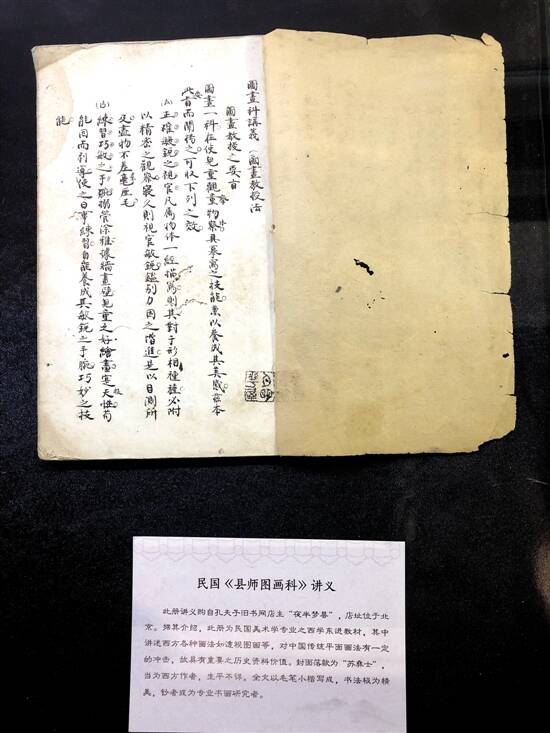 圖畫科講義（圖畫教授法
圖畫教授之要旨
圖畫一科在使兒童觀畫物察其摹寫之技能兼以養成其美感茲本
此旨而闡揚之可收下列之效
正確敏銳之視官凡屬物体一經描寫則其對于形相種種必附
以精密之觀察 久則視官敏銳鑑別力因之增進是以目測所
及畫物不差毫厘毛
練習巧敏之手腕搦管塗雅 牆畫壁兒童之好繪畫寔天性苟
能因而利導使之日事練習自能養成其敏銳之手腕巧妙之技
能
民国《县师图画科》讲义
此册讲义购自孔夫子旧书网店主“夜半梦 ”，店址位于北
京。据其介绍，此册为民国美术学专业之西学东进教材，其中
讲述西方各种画法如透视图画等，对中国传统平面画法有一定
的冲击，故具有重要之历史资料价值。封面落款为“苏彝士”，
当为西方作者，生平不详。全文以毛笔小楷写成，书法极为精
美，钞者或为专业书画研究者。